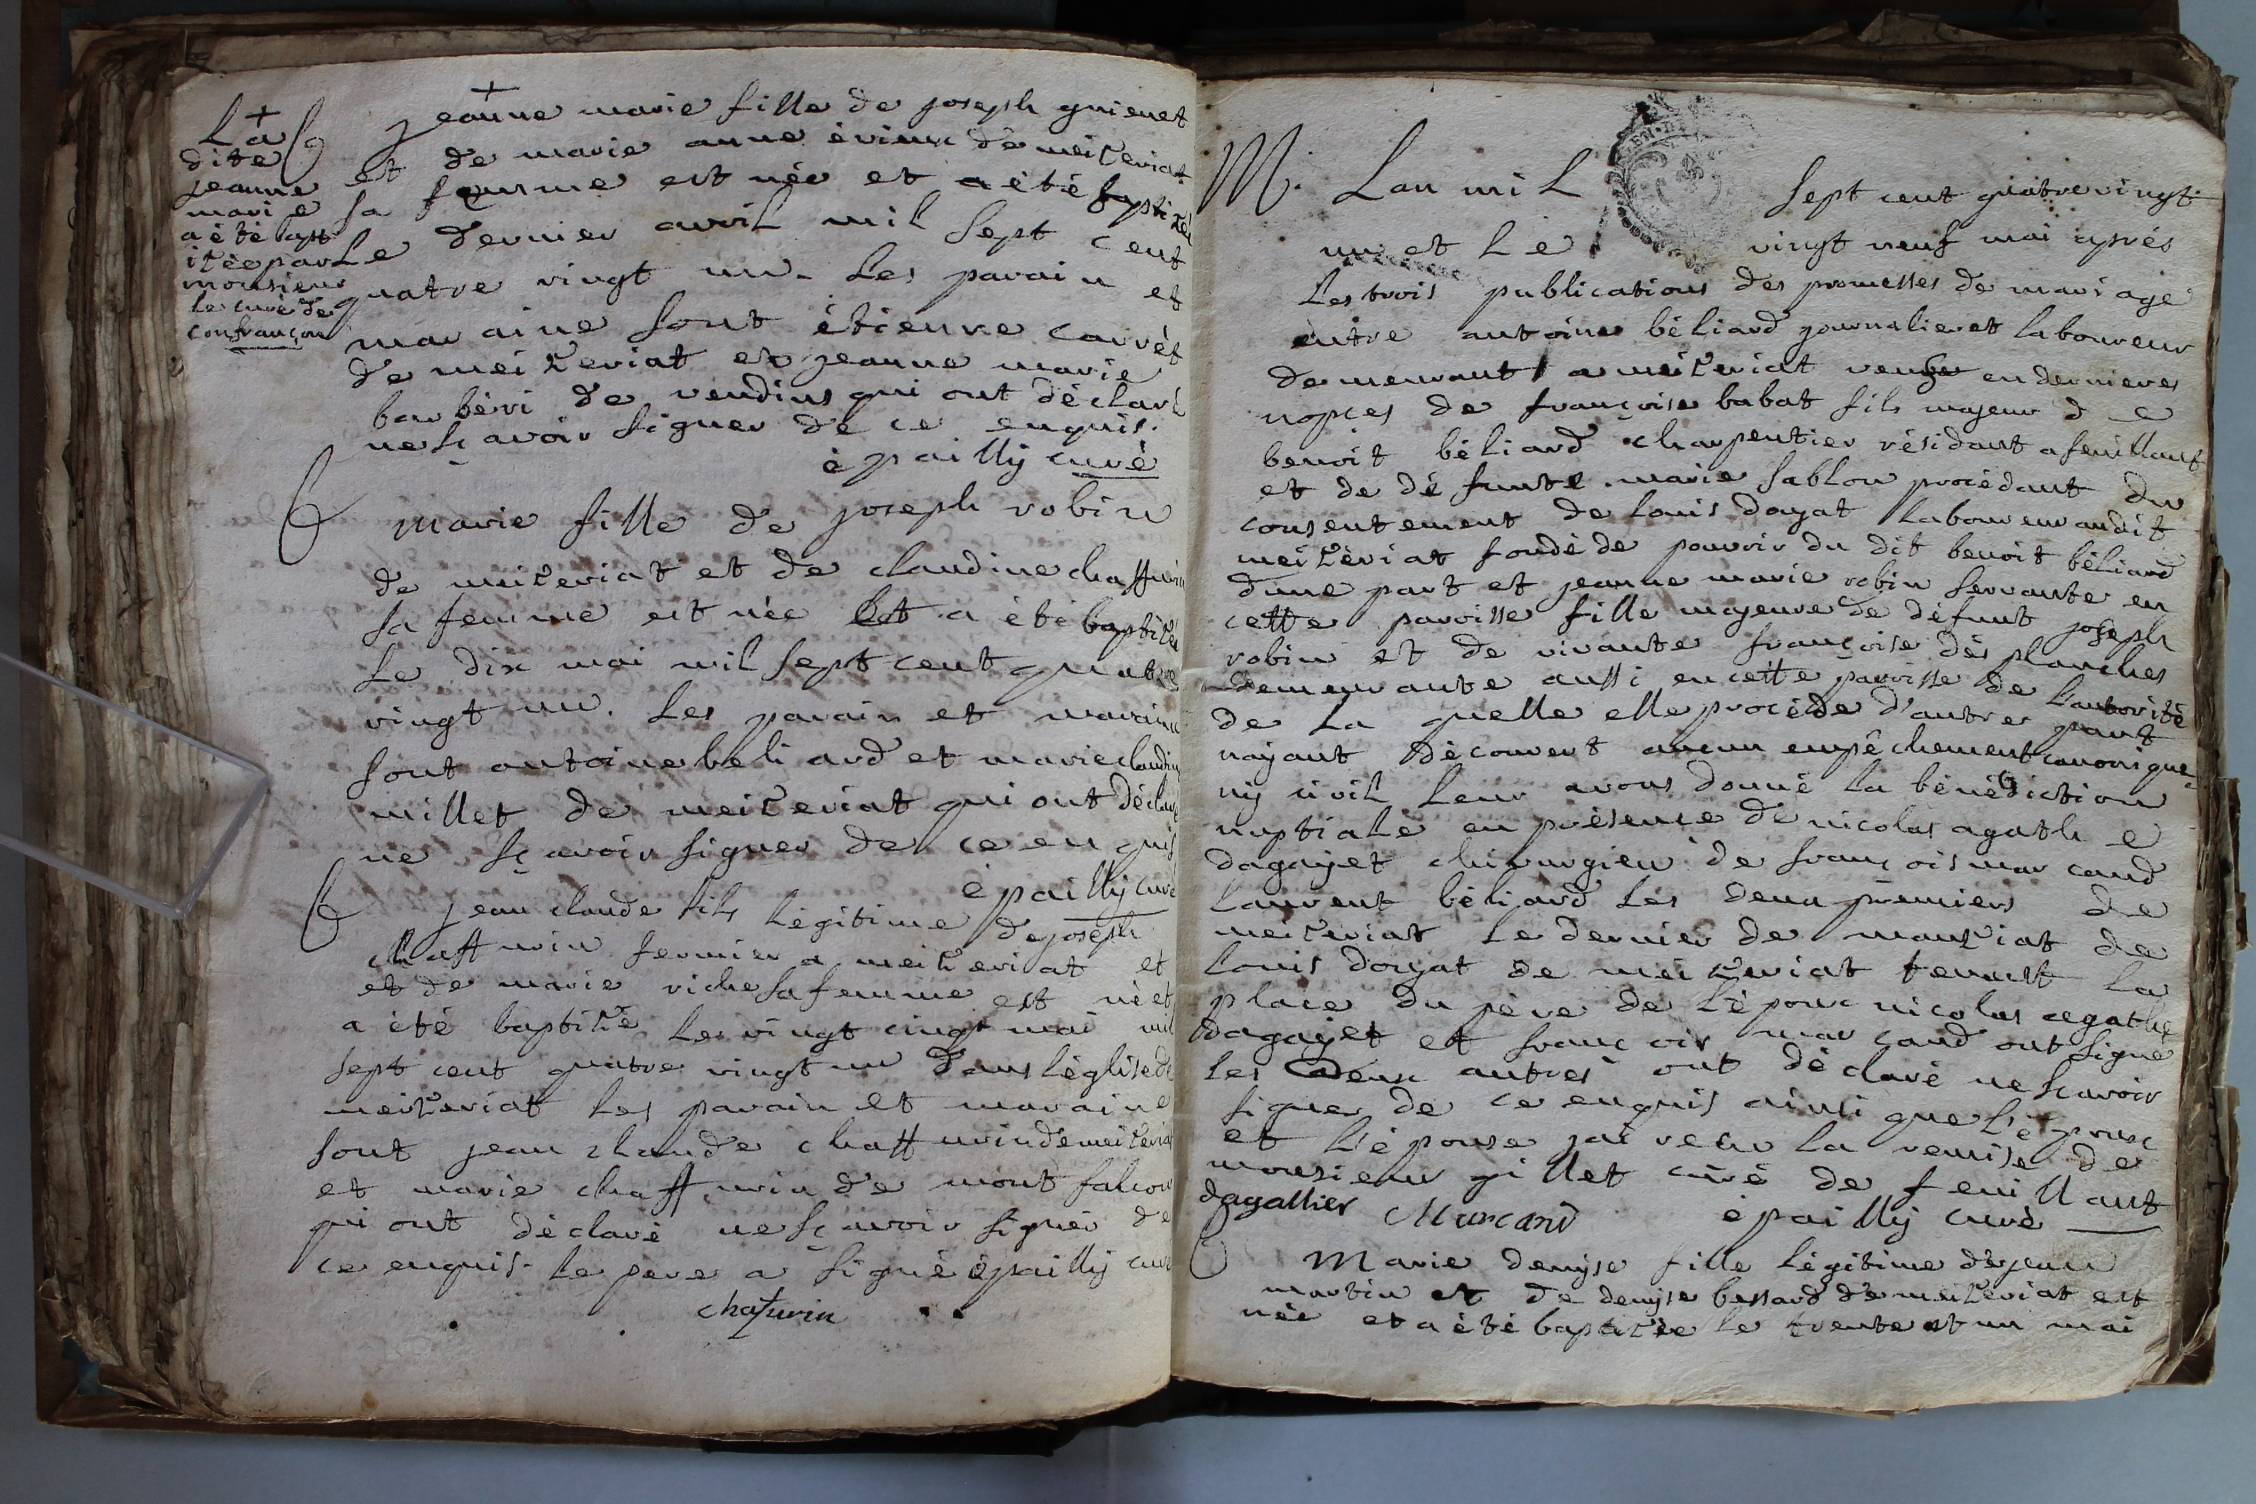 +
La
dite
jeanne
marie
a été bapt
itée par
monsieur
le curé de
confrançon
+
B jeanne marie fille de joseph guienet
et de marie anne évieux de meizeriat
sa femme est née et a été baptizée
Le dernier avril mil sept cent
quatre vingt un. Les parain et
maraine sont étienne carrét
de meizeriat et jeanne marie
barbéri de vendins qui ont déclaré
ne sçavoir signer de ce enquis.
épailly curé
B marie fille de joseph robin
de meizeriat et de claudine chaffurin
sa femme est née et a été baptizée
Le dix mai mil sept cent quatre
vingt un. Les parain et maraine
sont antoine beliard et marie claudine
millet de meizeriat qui ont déclaré
ne sçavoir signer de ce enquis
épailly curé
B jean claude fils légitime de joseph
chaffurin fermier a meizeriat et
et de marie riche sa femme est né et
a été baptizé Le vingt cinq mai mil
sept cent quatre vingt un dans léglise de
meizeriat Les parain et maraine
sont jean claude chaffurin de meizeriat
et marie chaffurin de montfalcon
qui ont déclaré ne sçavoir signer de
ce enquis. Le pere a signé épailly curé
chafurin
M. Lan mil sept cent quatre vingt
un et Le vingt neuf mai après
Les trois publications des promesses de mariage
entre antoine béliard journalier et laboureur
demeurant a meizeriat veuf en dernieres
nopces de françoise babat fils majeur de
benoit béliard charpentier résidant a feuillant
et de défunte marie sablon procédant du
consentement de louis doyat laboureur audit
meizériat fondé de pouvoir du dit benoit béliard
dune part et jeanne marie robin servante en
cette paroisse fille majeure de défunt joseph
robin et de vivante françoise des planches
demeurante aussi en cette paroisse de l'autorité
de La quelle elle procéde d'autre part
nayant découvert aucun empêchement canonique
ny civil leur avons donné la bénédiction
nuptiale en présence de nicolas agathe
dagayet chirurgien de françois marcand
laurent béliard les deux premiers de
meizeriat le dernier de manziat de
Louis doyat de meizeriat tenant la
place du père de l'époux nicolas agathe
dagayet et françois marcand ont signé
Les deux autres ont déclaré ne sçavoir
signer de ce enquis ainsi que l'époux
et l'épouse jai recu la remise de
monsieur gillet curé de feuillant
dagallier Marcand épailly curé
B Marie denyse fille légitime de jean
martin et de denyse bessard de meizeriat est
née et a été baptizée le trente et un mai